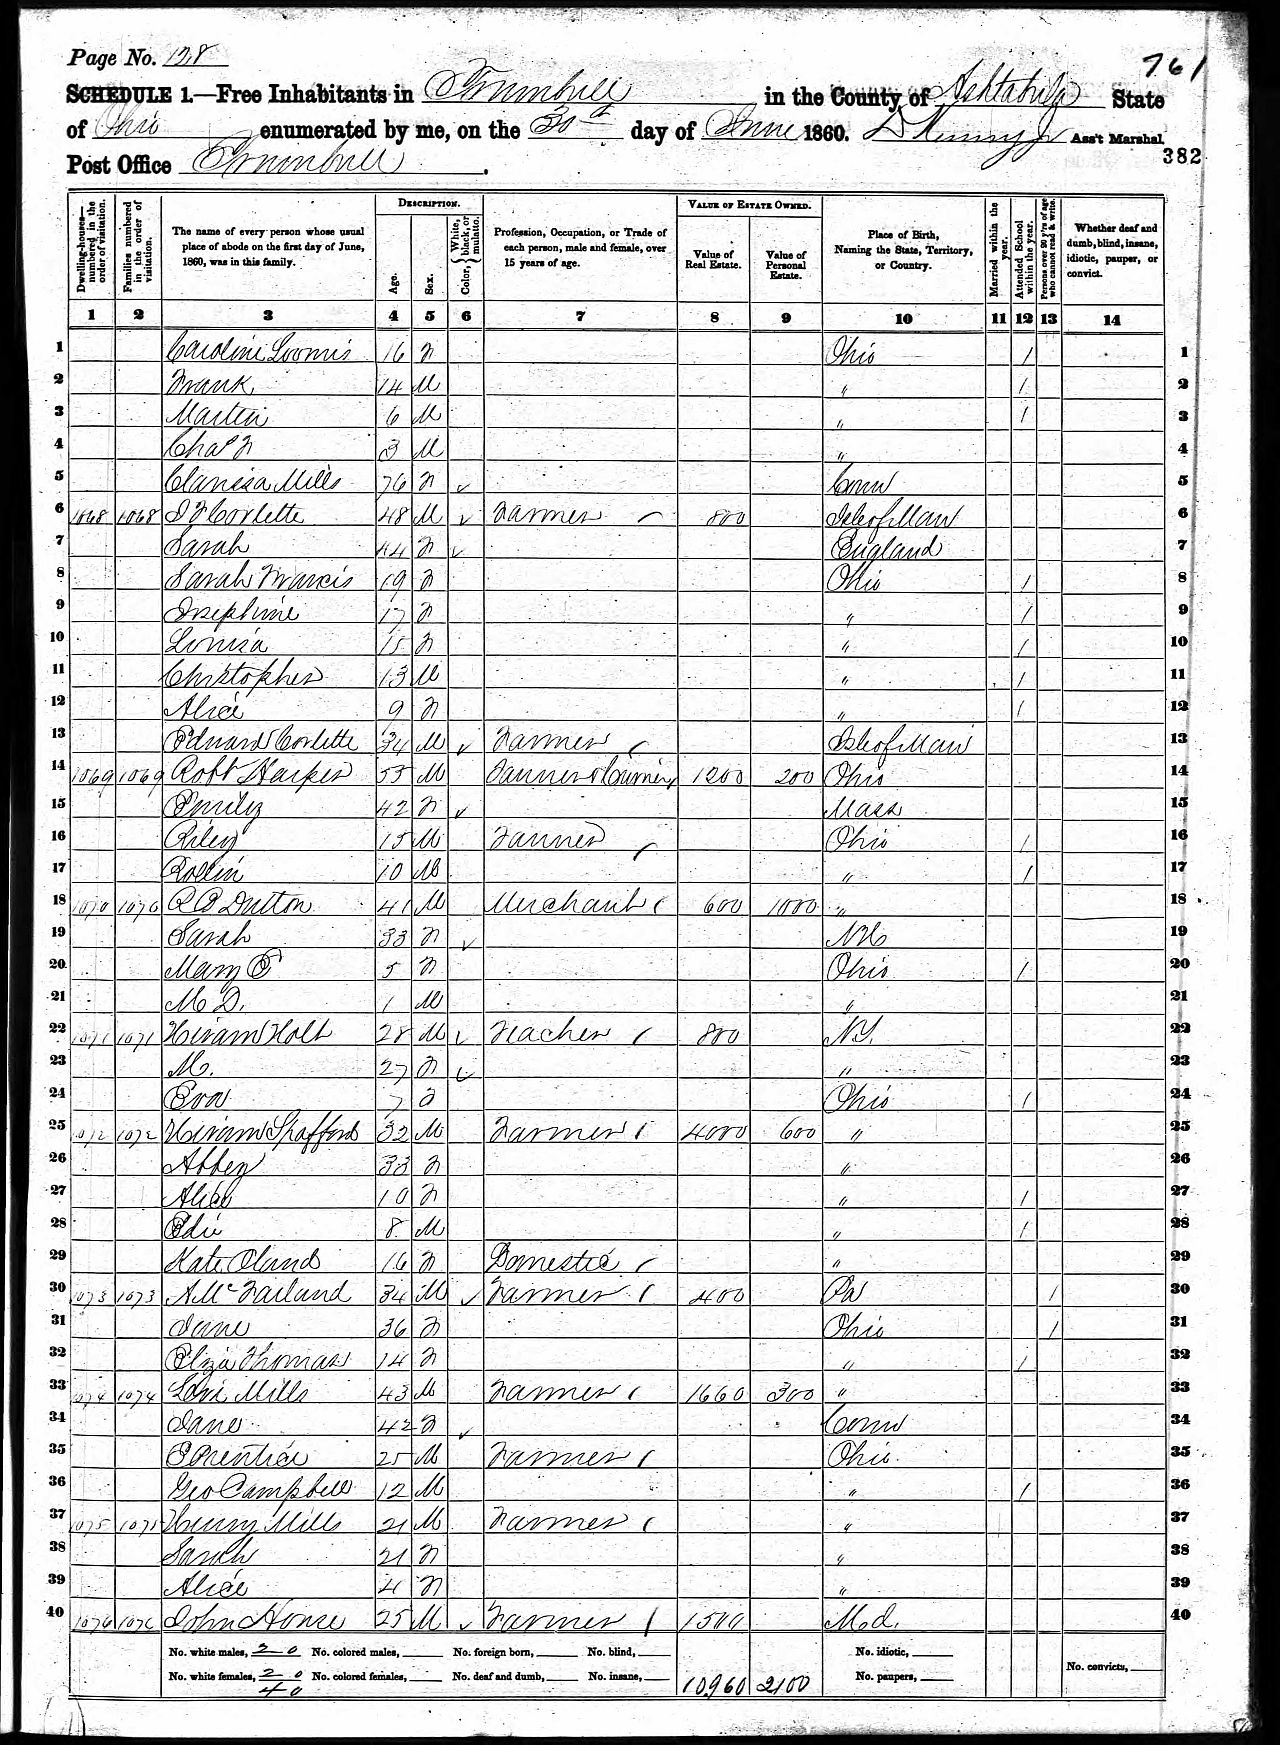 Page No. 128
761
SCHEDULE 1.—Free Inhabitants in Trumbull in the County of Ashtabula State
of Ohio enumerated by me, on the 30th day of June 1860. Ass't Marshal.
Post Office Trumbull.
382
Dwelling-houses—numbered in the order of visitation.
Families numbered in the order of visitation.
The name of every person whose usual place of abode on the first day of June, 1860, was in this family.
DESCRIPTION.
Age.
Sex.
Color, White, black, or mulatto.
Profession, Occupation, or Trade of each person, male and female, over 15 years of age.
VALUE OF ESTATE OWNED.
Value of Real Estate.
Value of Personal Estate.
Place of Birth, Naming the State, Territory, or Country.
Married within the year.
Attended School within the year.
Persons over 20 y'rs of age who cannot read & write.
Whether deaf and dumb, blind, insane, idiotic, pauper, or convict.
1 2 3 4 5 6 7 8 9 10 11 12 13 14
1 Caroline Loomis 16 F Ohio / 1
2 Frank 14 M " / 2
3 Martin 6 M " / 3
4 Chas F 3 M " 4
5 Clarissa Mills 76 F ✓ Conn 5
6 1068 1068 Corlette 48 M ✓ Farmer 800 Isle of Man 6
7 Sarah 44 F ✓ England 7
8 Sarah Francis 19 F Ohio / 8
9 Josephine 17 F " / 9
10 Louisa 15 F " / 10
11 Christopher 13 M " / 11
12 Alice 9 F " / 12
13 Edward Corlette 34 M ✓ Farmer Isle of Man 13
14 1069 1069 Robt Harper 55 M Tanner & 1200 200 Ohio 14
15 Emily 42 F ✓ Mass 15
16 Riley 15 M Tanner Ohio / 16
17 Rollin 10 M " / 17
18 1070 1070 R B Dutton 41 M Merchant 600 1000 " 18
19 Sarah 33 F ✓ NH 19
20 Mary E 5 F Ohio / 20
21 M D. 1 M " 21
22 1071 1071 Hiram Holt 28 M ✓ Teacher 800 N.Y. 22
23 M. 27 F ✓ " 23
24 Eva 7 F Ohio / 24
25 1072 1072 Hiram Spafford 32 M Farmer 4000 600 " 25
26 Abbey 33 F " 26
27 Alice 10 F " / 27
28 Edie 8 M " / 28
29 Kate Oland 16 F Domestic " 29
30 1073 1073 A McFarland 34 M ✓ Farmer 400 Pa / 30
31 Jane 36 F Ohio / 31
32 Eliza Thomas 14 F " / 32
33 1074 1074 Levi Mills 43 M Farmer 1660 300 " 33
34 Jane 42 F ✓ Conn 34
35 E Prentice 25 M Farmer Ohio 35
36 Geo Campbell 12 M " / 36
37 1075 1075 Henry Mills 21 M Farmer " 37
38 Sarah 21 F " 38
39 Alice 4 F " 39
40 1076 1076 John House 25 M ✓ Farmer 1500 Md. 40
No. white males, 20 No. colored males, No. foreign born, No. blind, No. idiotic,
No. white females, 20 No. colored females, No. deaf and dumb, No. insane, 10960 2100 No. paupers, No. convicts,
40